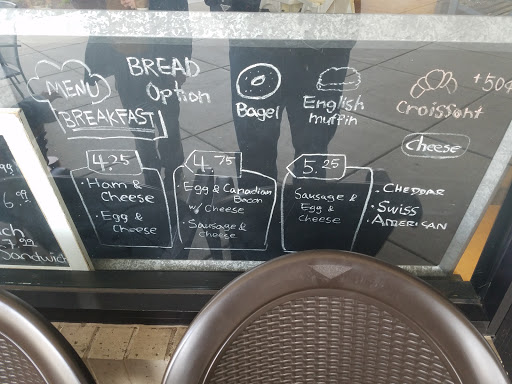 MENU
BREAKFAST
BREAD
Option
Bagel
English
muffin
Croissant
+50¢
Cheese
. CHEDDAR
. Swiss
. AMERICAN
4.25
. Ham &
Cheese
. Egg &
Cheese
4.75
. Egg & Canadian
Bacon
w/ Cheese
. Sausage &
cheese
5.25
Sausage &
Egg &
Cheese
6.99
7.99
Sandwich